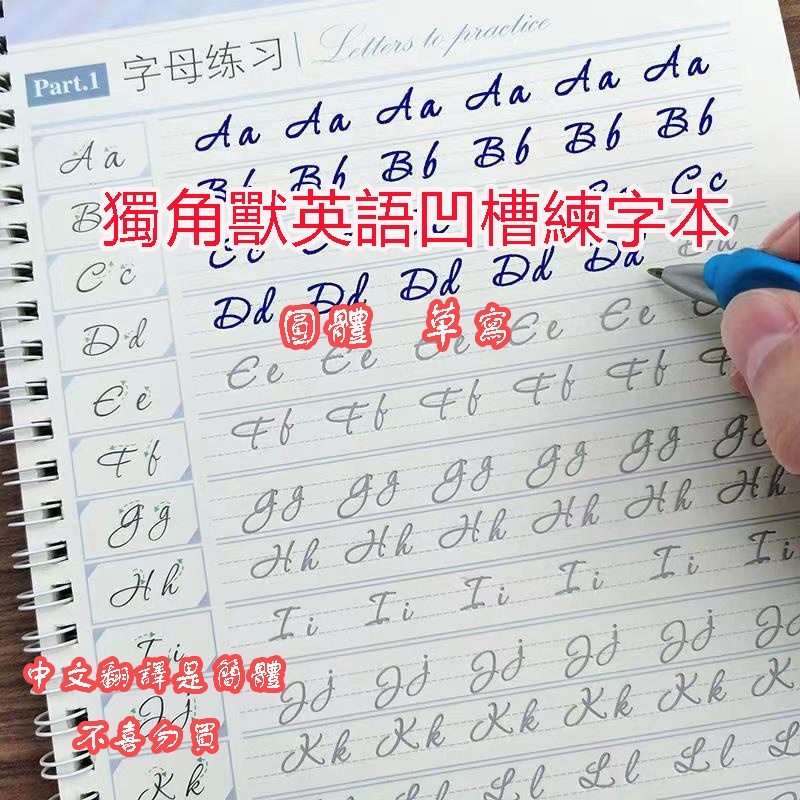 Part.1 字母练习 Letters to practice
Aa Aa Aa Aa Aa Aa Aa
B Bb Bb Bb Bb Bb Bb
獨角獸英語凹槽練字本
Cc Cc Cc
Dd Dd Dd Dd Dd Dd Dd
圓體 草寫
Ee Ee Ee Ee Ee Ee
Ff Ff Ff Ff Ff Ff F
Gg Gg Gg Gg Gg Gg Gg
Hh Hh Hh Hh Hh Hh Hh
Ii Ii Ii Ii Ii Ii Ii
中文翻譯是簡體
Jj Jj Jj Jj Jj Jj J
不喜勿買
Kk Kk Kk Kk Kk Kk K
Ll Ll Ll